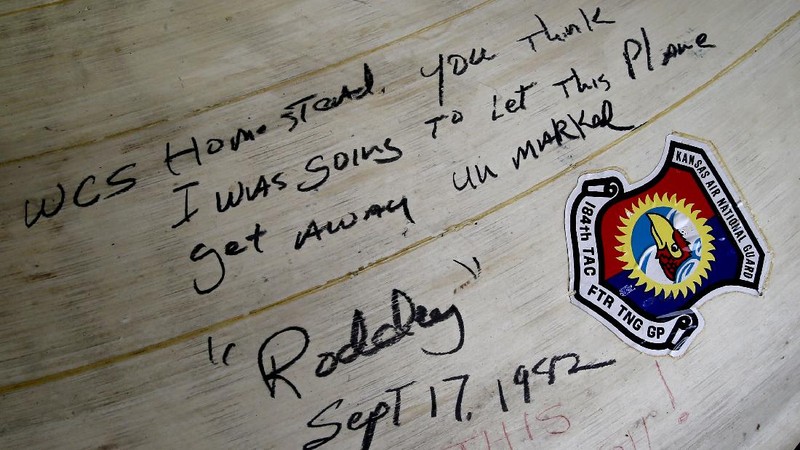 WCS Homestead. You Think
I was going to Let This Plane
get away un marked
"Roddey"
Sept 17, 1982
KANSAS AIR NATIONAL GUARD
184th TAC FTR TNG GP
THIS